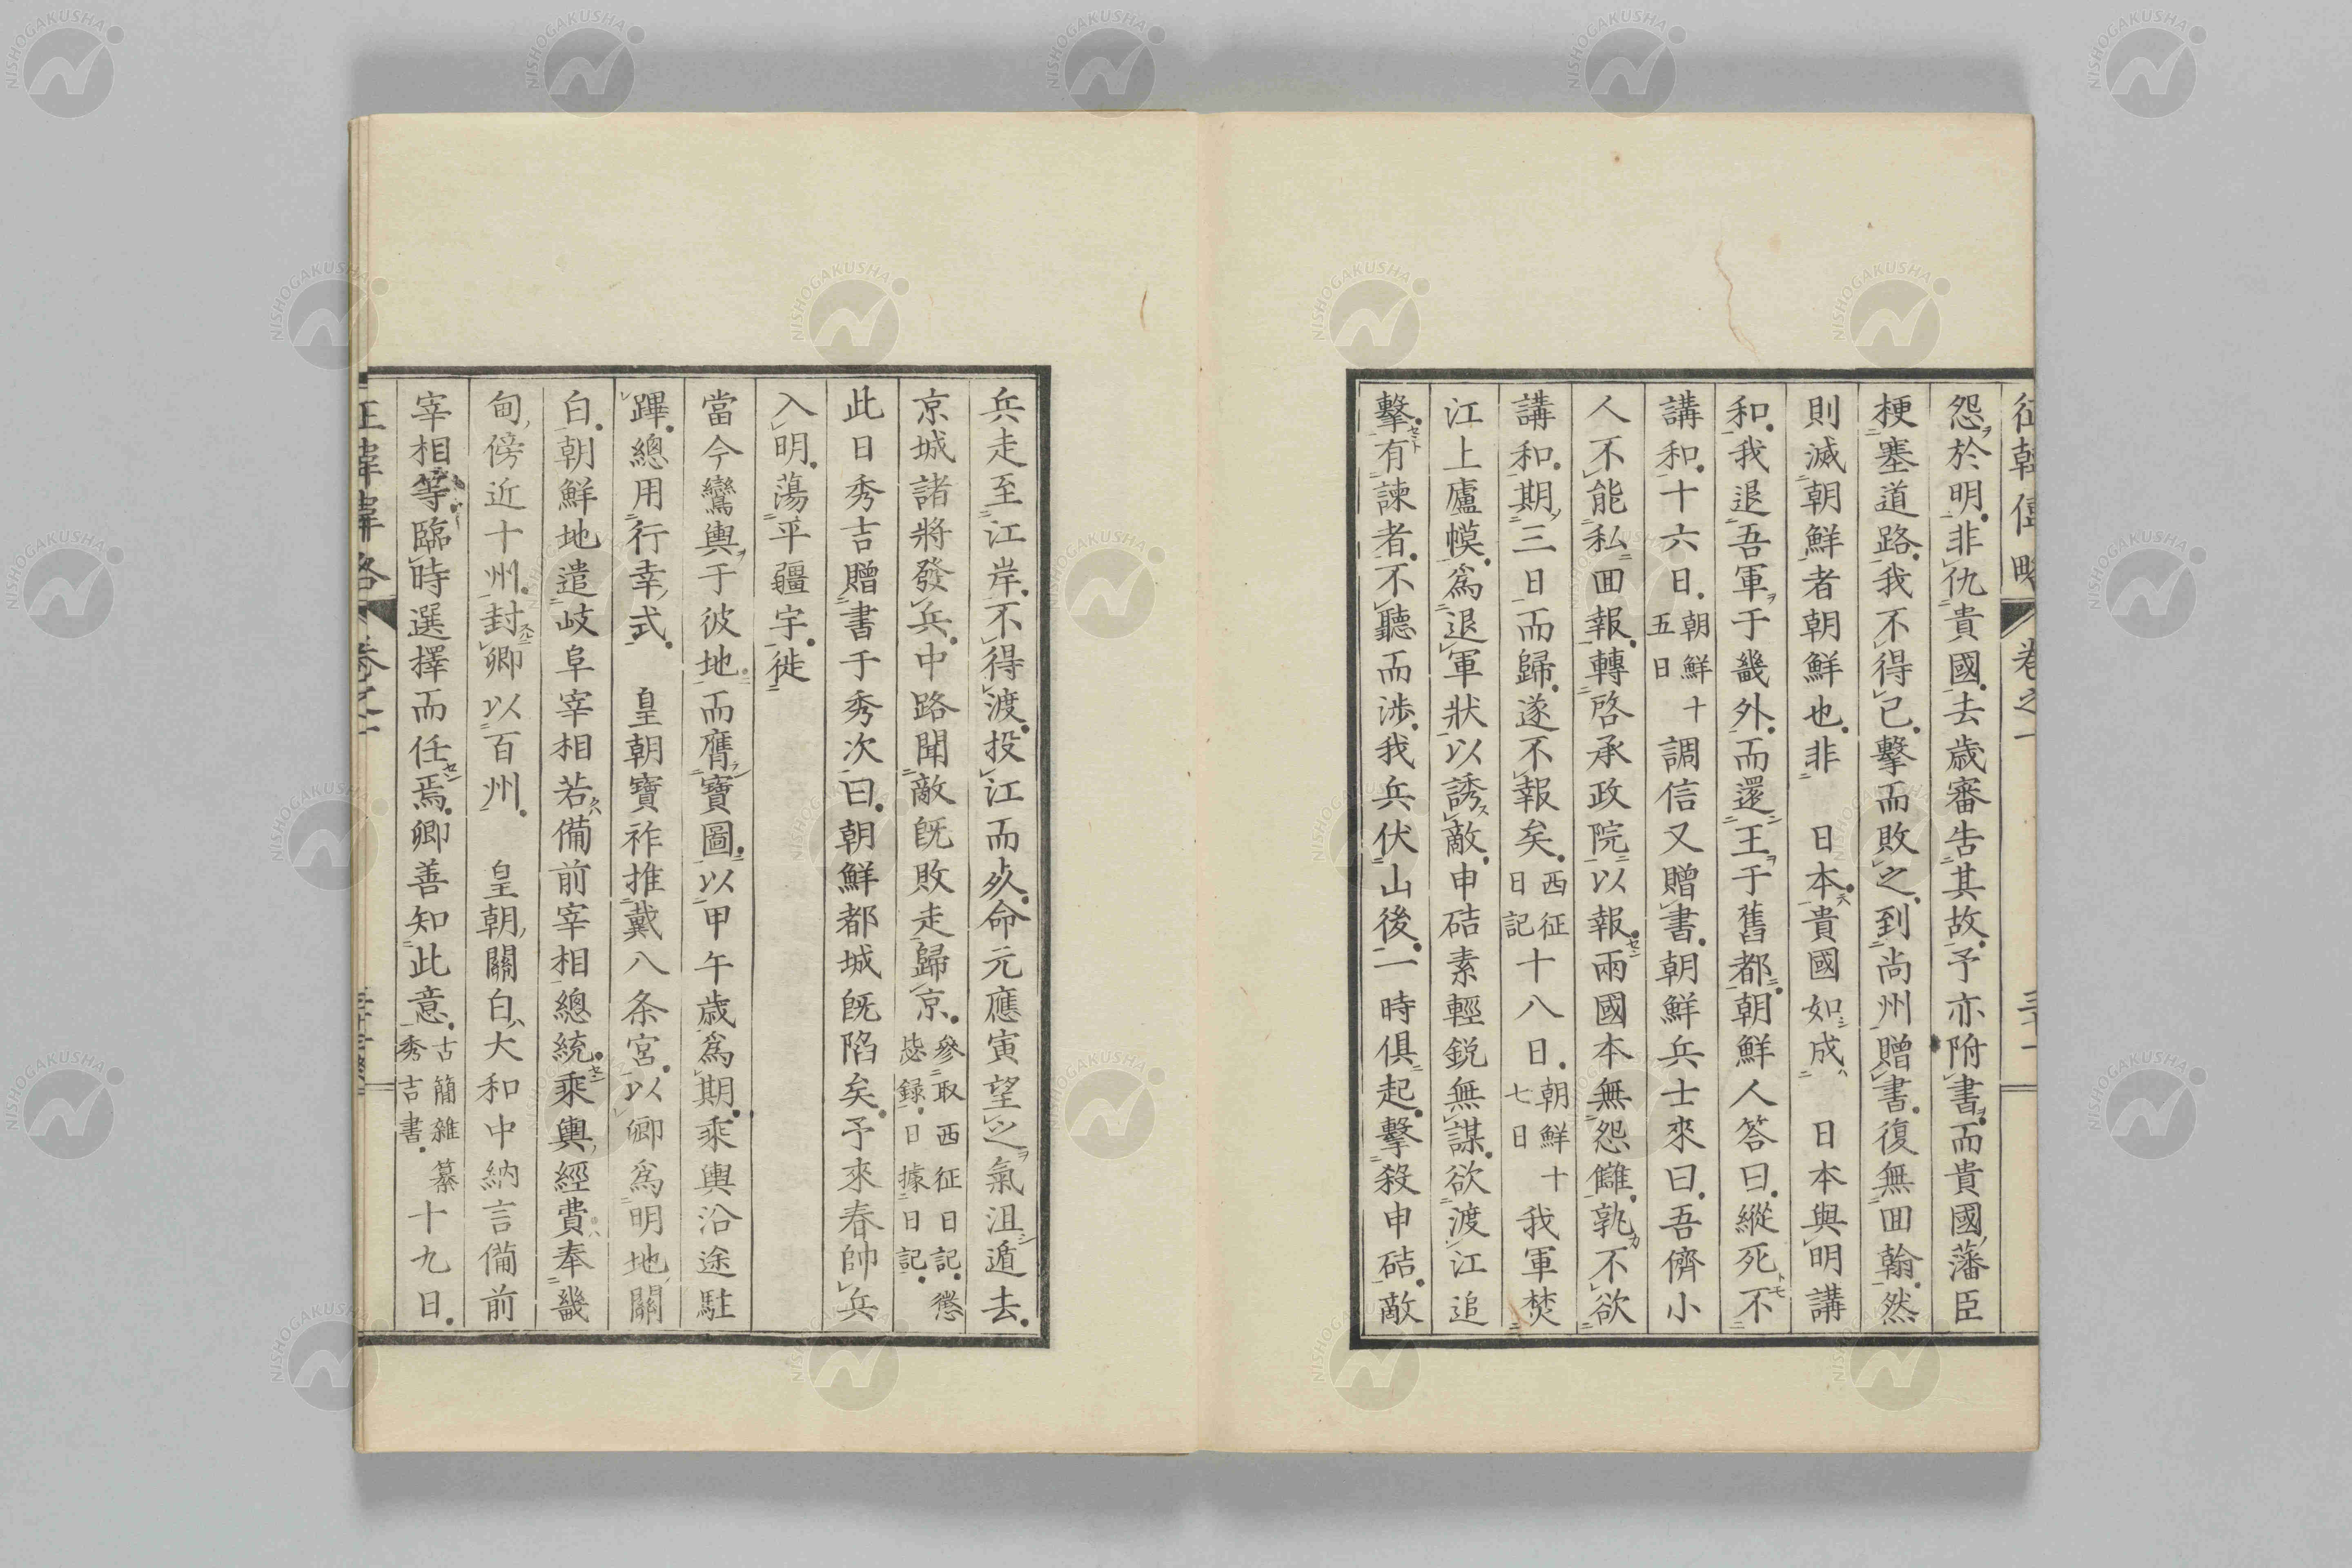 征韓偉略 卷之一 三十一
怨於明。非仇貴國。去歲審告其故。予亦附書。而貴國藩臣
梗塞道路。我不得已。擊而敗之。到尚州贈書。復無回翰。然
則滅朝鮮者朝鮮也。非 日本。貴國如成 日本與明講
和。我退吾軍于畿外。而還王于舊都。朝鮮人答曰。縱死不
講和。十六日。朝鮮十五日調信又贈書。朝鮮兵士來曰。吾儕小
人不能私回報。轉啓承政院以報。兩國本無怨讎。孰不欲
講和。期三日而歸。遂不報矣。西征日記十八日。朝鮮十七日我軍焚
江上廬幙。爲退軍狀以誘敵。申硈素輕銳無謀。欲渡江追
擊。有諫者。不聽而涉。我兵伏山後。一時俱起。擊殺申硈。敵
兵走至江岸。不得渡。投江而死。命元應寅望之氣沮遁去。
京城諸將發兵。中路聞敵既敗走歸京。參取西征日記。懲毖録。日據日記。
此日秀吉贈書于秀次曰。朝鮮都城既陷矣。予來春帥兵
入明。蕩平疆宇。徙
當今鸞輿于彼地而膺寶圖。以甲午歲爲期。乘輿沿途駐
蹕。總用行幸式。 皇朝寶祚推戴八条宮。以卿爲明地關
白。朝鮮地遣岐阜宰相若備前宰相總統。乘輿經費奉畿
甸傍近十州。封卿以百州。 皇朝關白大和中納言備前
宰相等臨時選擇而任焉。卿善知此意。古簡雜纂秀吉書。十九日。